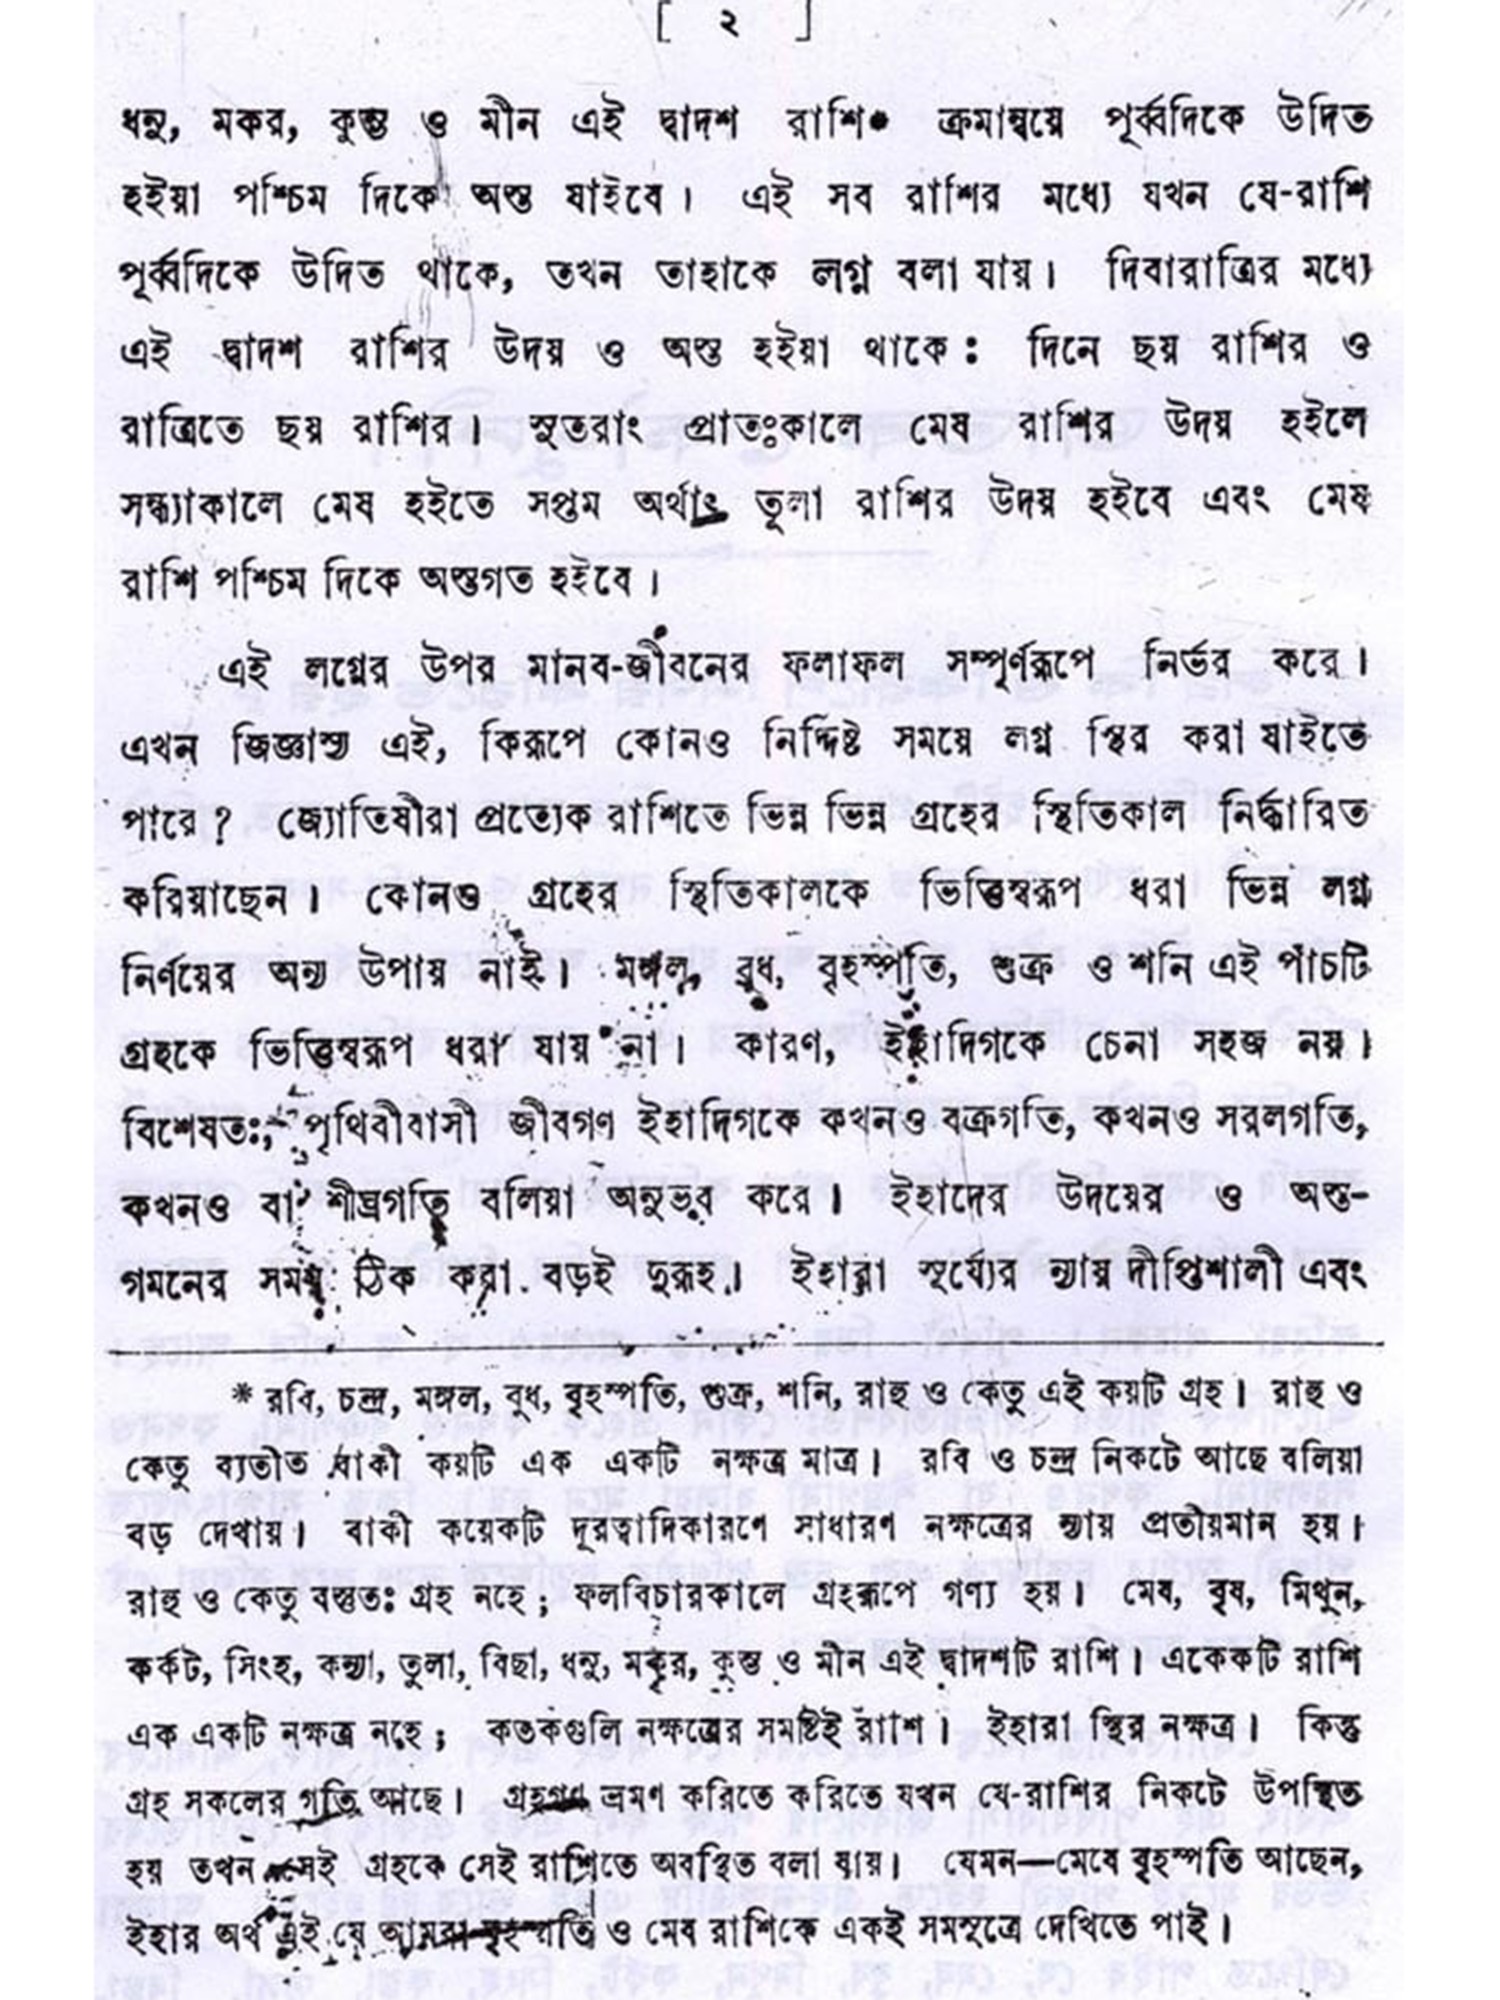 [ ২ ]
ধনু, মকর, কুম্ভ ও মীন এই দ্বাদশ রাশি* ক্রমান্বয়ে পূর্ব্বদিকে উদিত
হইয়া পশ্চিম দিকে অস্ত যাইবে। এই সব রাশির মধ্যে যখন যে-রাশি
পূর্ব্বদিকে উদিত থাকে, তখন তাহাকে লগ্ন বলা যায়। দিবারাত্রির মধ্যে
এই দ্বাদশ রাশির উদয় ও অস্ত হইয়া থাকে: দিনে ছয় রাশির ও
রাত্রিতে ছয় রাশির। সুতরাং প্রাতঃকালে মেষ রাশির উদয় হইলে
সন্ধ্যাকালে মেষ হইতে সপ্তম অর্থাৎ তূলা রাশির উদয় হইবে এবং মেষ
রাশি পশ্চিম দিকে অস্তগত হইবে।
এই লগ্নের উপর মানব-জীবনের ফলাফল সম্পূর্ণরূপে নির্ভর করে।
এখন জিজ্ঞাস্য এই, কিরূপে কোনও নির্দ্দিষ্ট সময়ে লগ্ন স্থির করা যাইতে
পারে? জ্যোতিষীরা প্রত্যেক রাশিতে ভিন্ন ভিন্ন গ্রহের স্থিতিকাল নির্দ্ধারিত
করিয়াছেন। কোনও গ্রহের স্থিতিকালকে ভিত্তিস্বরূপ ধরা ভিন্ন লগ্ন
নির্ণয়ের অন্য উপায় নাই। মঙ্গল, বুধ, বৃহস্পতি, শুক্র ও শনি এই পাঁচটি
গ্রহকে ভিত্তিস্বরূপ ধরা যায় না। কারণ, ইহাদিগকে চেনা সহজ নয়।
বিশেষতঃ, পৃথিবীবাসী জীবগণ ইহাদিগকে কখনও বক্রগতি, কখনও সরলগতি,
কখনও বা শীঘ্রগতি বলিয়া অনুভব করে। ইহাদের উদয়ের ও অস্ত-
গমনের সময় ঠিক করা বড়ই দুরূহ। ইহারা সূর্য্যের ন্যায় দীপ্তিশালী এবং
* রবি, চন্দ্র, মঙ্গল, বুধ, বৃহস্পতি, শুক্র, শনি, রাহু ও কেতু এই কয়টি গ্রহ। রাহু ও
কেতু ব্যতীত বাকী কয়টি এক একটি নক্ষত্র মাত্র। রবি ও চন্দ্র নিকটে আছে বলিয়া
বড় দেখায়। বাকী কয়েকটি দূরত্বাদিকারণে সাধারণ নক্ষত্রের ন্যায় প্রতীয়মান হয়।
রাহু ও কেতু বস্তুতঃ গ্রহ নহে; ফলবিচারকালে গ্রহরূপে গণ্য হয়। মেষ, বৃষ, মিথুন,
কর্কট, সিংহ, কন্যা, তুলা, বিছা, ধনু, মকর, কুম্ভ ও মীন এই দ্বাদশটি রাশি। একেকটি রাশি
এক একটি নক্ষত্র নহে; কতকগুলি নক্ষত্রের সমষ্টিই রাশি। ইহারা স্থির নক্ষত্র। কিন্তু
গ্রহ সকলের গতি আছে। গ্রহগণ ভ্রমণ করিতে করিতে যখন যে-রাশির নিকটে উপস্থিত
হয় তখন সেই গ্রহকে সেই রাশিতে অবস্থিত বলা যায়। যেমন—মেষে বৃহস্পতি আছেন,
ইহার অর্থ এই যে আমরা বৃহস্পতি ও মেষ রাশিকে একই সমসূত্রে দেখিতে পাই।